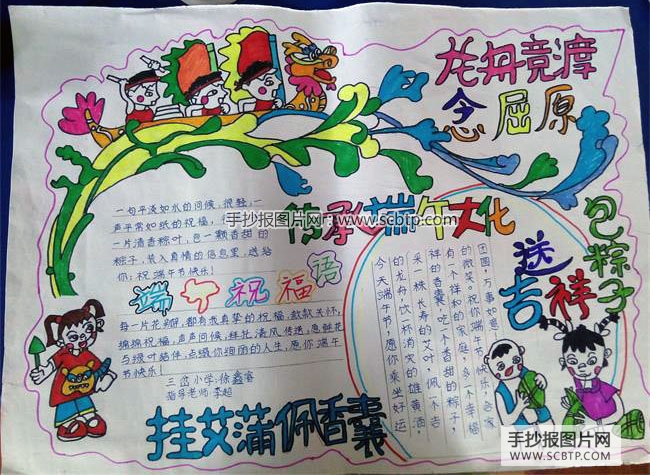 龙舟竞渡
念屈原
一句平淡如水的问候，很轻，一
声平常如纸的祝福，
一片清香粽叶，包一颗香甜的
粽子，装入真情的信息里，送给
你：祝端午节快乐！
手抄报图片网：www.scbtp.com
传承端午文化
端午祝福语
每一片花瓣，都有我真挚的祝福，款款关怀，
绵绵祝福，声声问候，拜托清风传递，愿鲜花
与绿叶结伴，点缀你绚丽的人生，愿你端午
节快乐！
三岔小学：徐鑫睿
指导老师：李超
挂艾蒲佩香囊
包粽子
送吉祥
今天端午节，愿你乘坐好运
的龙舟，饮一杯消灾的雄黄酒，
采一株长寿的艾叶，佩一个吉
祥的香囊，吃一个香甜的粽子，
有一个祥和的家庭，多一个幸福
的微笑。祝你端午节快乐，合家
团圆，万事如意！
手抄报图片网
WWW.SCBTP.COM